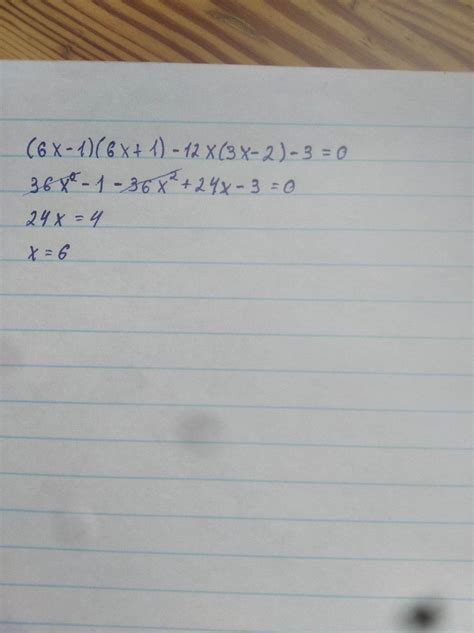 (6x-1)(6x+1)-12x(3x-2)-3=0
36x²-1-36x²+24x-3=0
24x=4
x=6